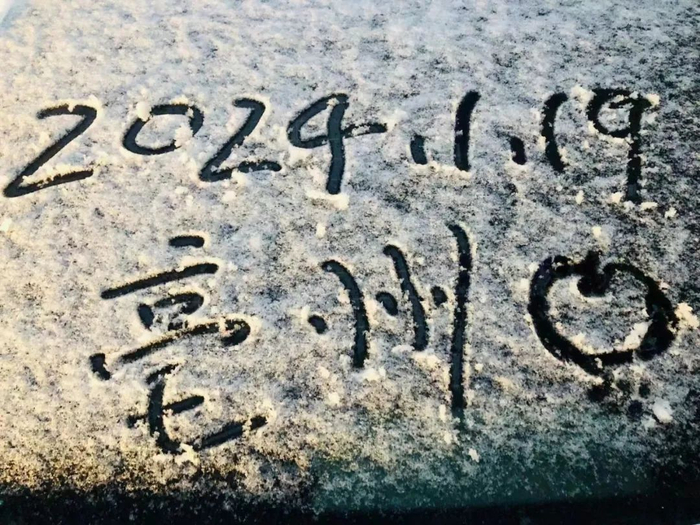 2024.1.19
亳州